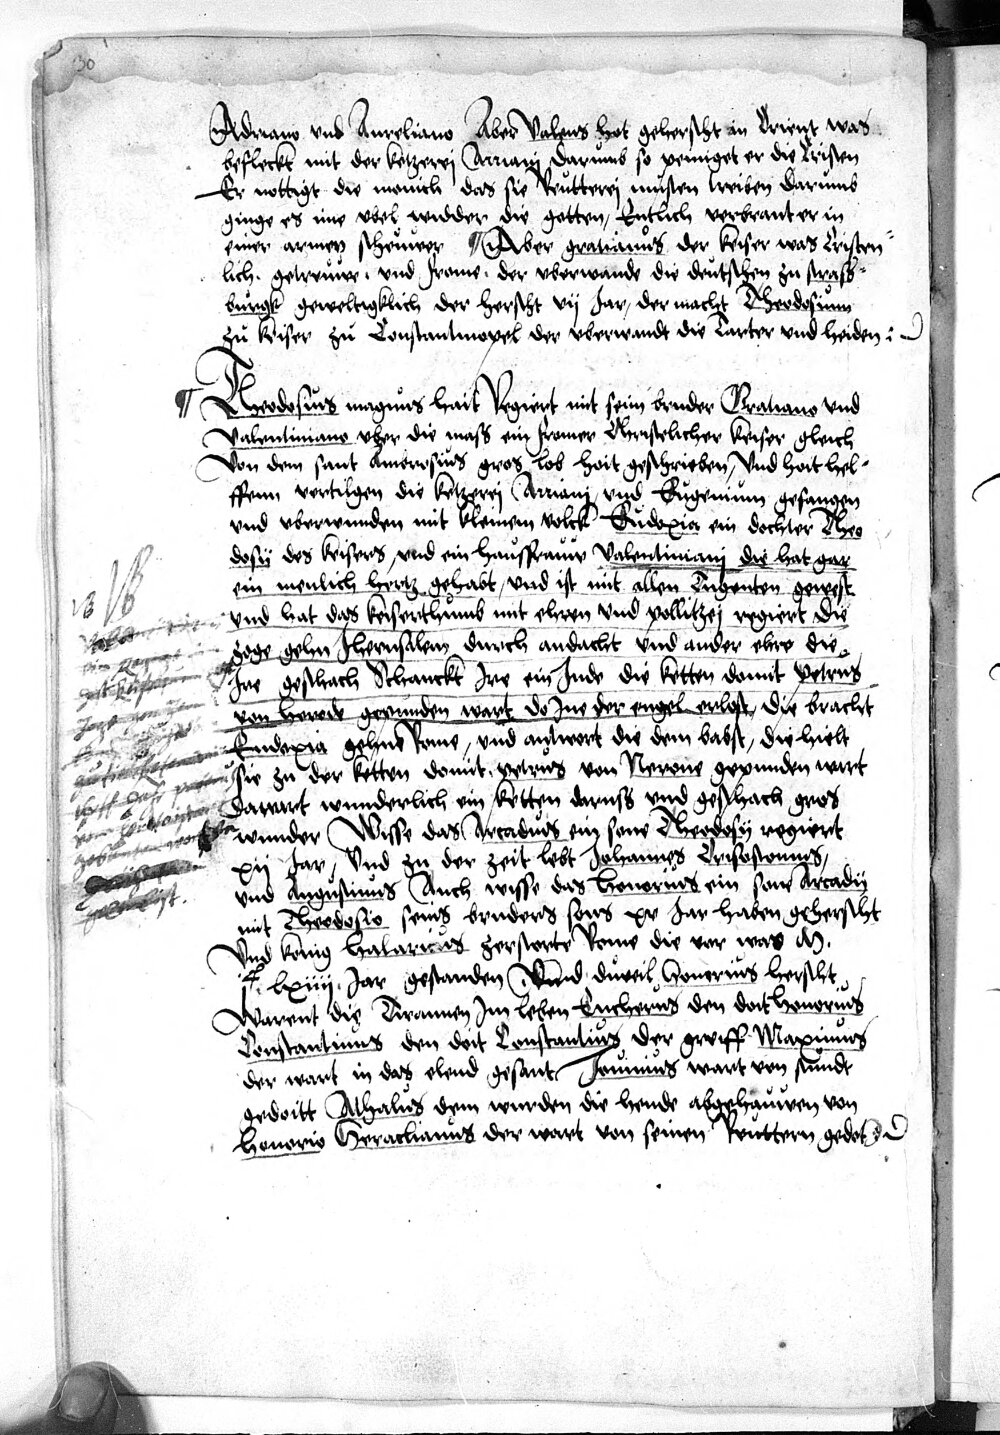 30
Adriano vnd Aureliano Aber Valens hat geherscht in Orient was
befleckt mit der ketzerej Arrianj darumb so peniget er die Cristen
Er nottigt die monich das sie Reutterej musten treiben darumb
ginge es ime vbel widder die gotten, Entlich verbrant er in
einer armen scheuwer ¶ Aber gratianus der keiser was Cristen-
lich. getreuwe. vnd frome. der vberwande die deutschen zu strass-
burgk geweltigklich der herscht vij Jar, der macht Theodosium
zu keiser zu Constantinopel der vberwandt die Tarter vnd heiden :
¶ Theodosius magnus hait Regiert mit seim bruder Gratiano vnd
Valentiniano vber die mass ein fromer Christelicher keiser gleich
Von dem sant Ambrosius gros lob hait geschrieben, Vnd hait hel-
ffenn vertilgen die ketzerej Arrianj vnd Eugenium gefangen
vnd vberwunden mit kleinem volck Eudoxia ein dochter Theo
dosij des keisers, vnd ein hausfrauw Valentinianj die hat gar
ein menlich hertz gehabt, vnd ist mit allen Tugenten gewest
vnd hat das keiserthumb mit ehren vnd pollitzej regiert die
zoge gehn Jherusalem durch andacht vnd ander ehre die
Jre geschach Schanckt Jre ein Jude die ketten domit petrus
von herode gebunden wart do Jne der engel erlost, die bracht
Eudoxia gehne Rome, vnd antwort die dem babst, die hielt
sie zu der ketten domit. petrus von Nerone gepunden wart
dawart wunderlich ein ketten daruss vnd geschach gros
wunder Wisse das Arcadius ein sone Theodosij regiert
xij Jar, Vnd zu der zeit lebt Johannes Crisostomus,
vnd Augustinus Auch wisse das honorius ein sone Arcadij
mit Theodosio seins bruders sons xv Jar haben geherscht
Vnd konig halaricus zerstorte Rome die vor was M.
lxiiij. Jar gestanden Vnnd duweil honorius herscht
Warent die Tirannen Jm leben Eucherus den doit honorius
Constantinus den doit Constantius der greiff Maximus
der wart in das elend gesant, Jouinius wart von stundt
gedoitt Athalus dem wurden die hende abgehauwen von
honorio Heraclianus der wart von seinen Reuttern gedot